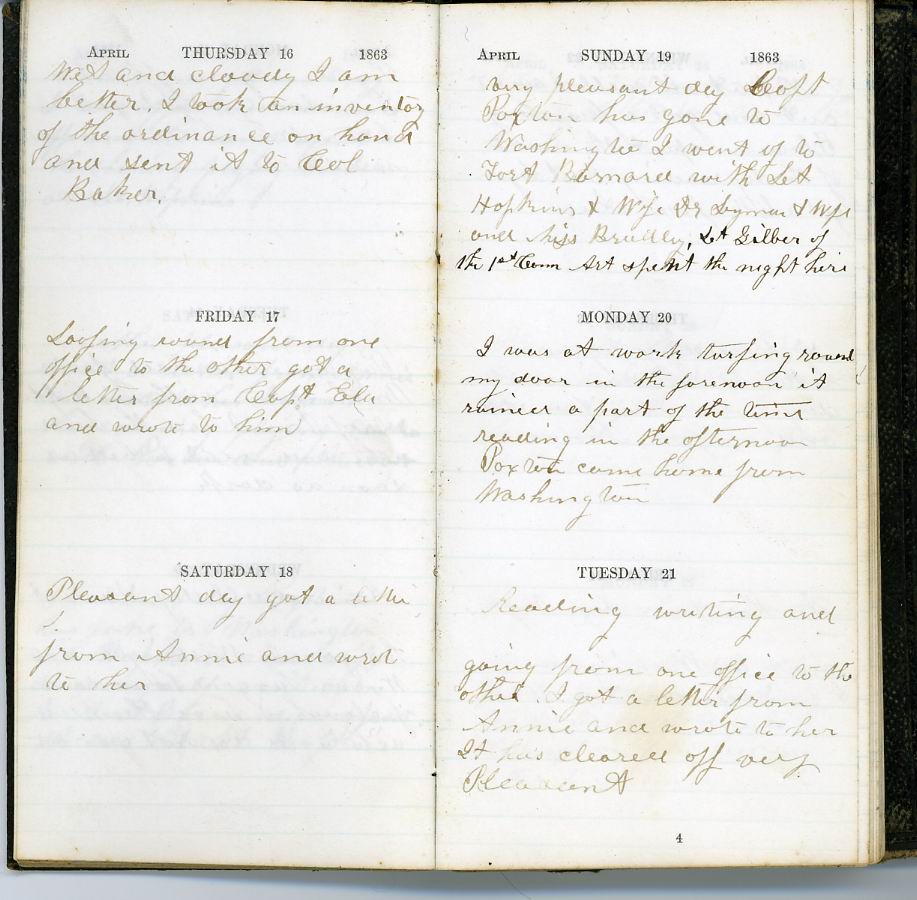 APRIL THURSDAY 16 1863
Wet and cloudy I am
better. I took an inventory
of the ordinance on hand
and sent it to Col
Baker.
FRIDAY 17
Loafing round from one
office to the other got a
letter from Capt Ela
and wrote to him
SATURDAY 18
Pleasant day got a letter
from Annie and wrot
to her
APRIL SUNDAY 19 1863
very pleasant day Capt
Poxton has gone to
Washington I went up to
Fort Barnard with Let
Hopkins & Wife Dr Lyman & Wife
and Miss Bradley, Lt Gilber of
the 1st Conn Art spent the night here
MONDAY 20
I was at work turfing round
my door in the forenoon it
rained a part of the time
reading in the afternoon
Poxton came home from
Washington
TUESDAY 21
Reading writing and
going from one office to the
other. I got a letter from
Annie and wrote to her
It has cleared off very
Pleasant
4